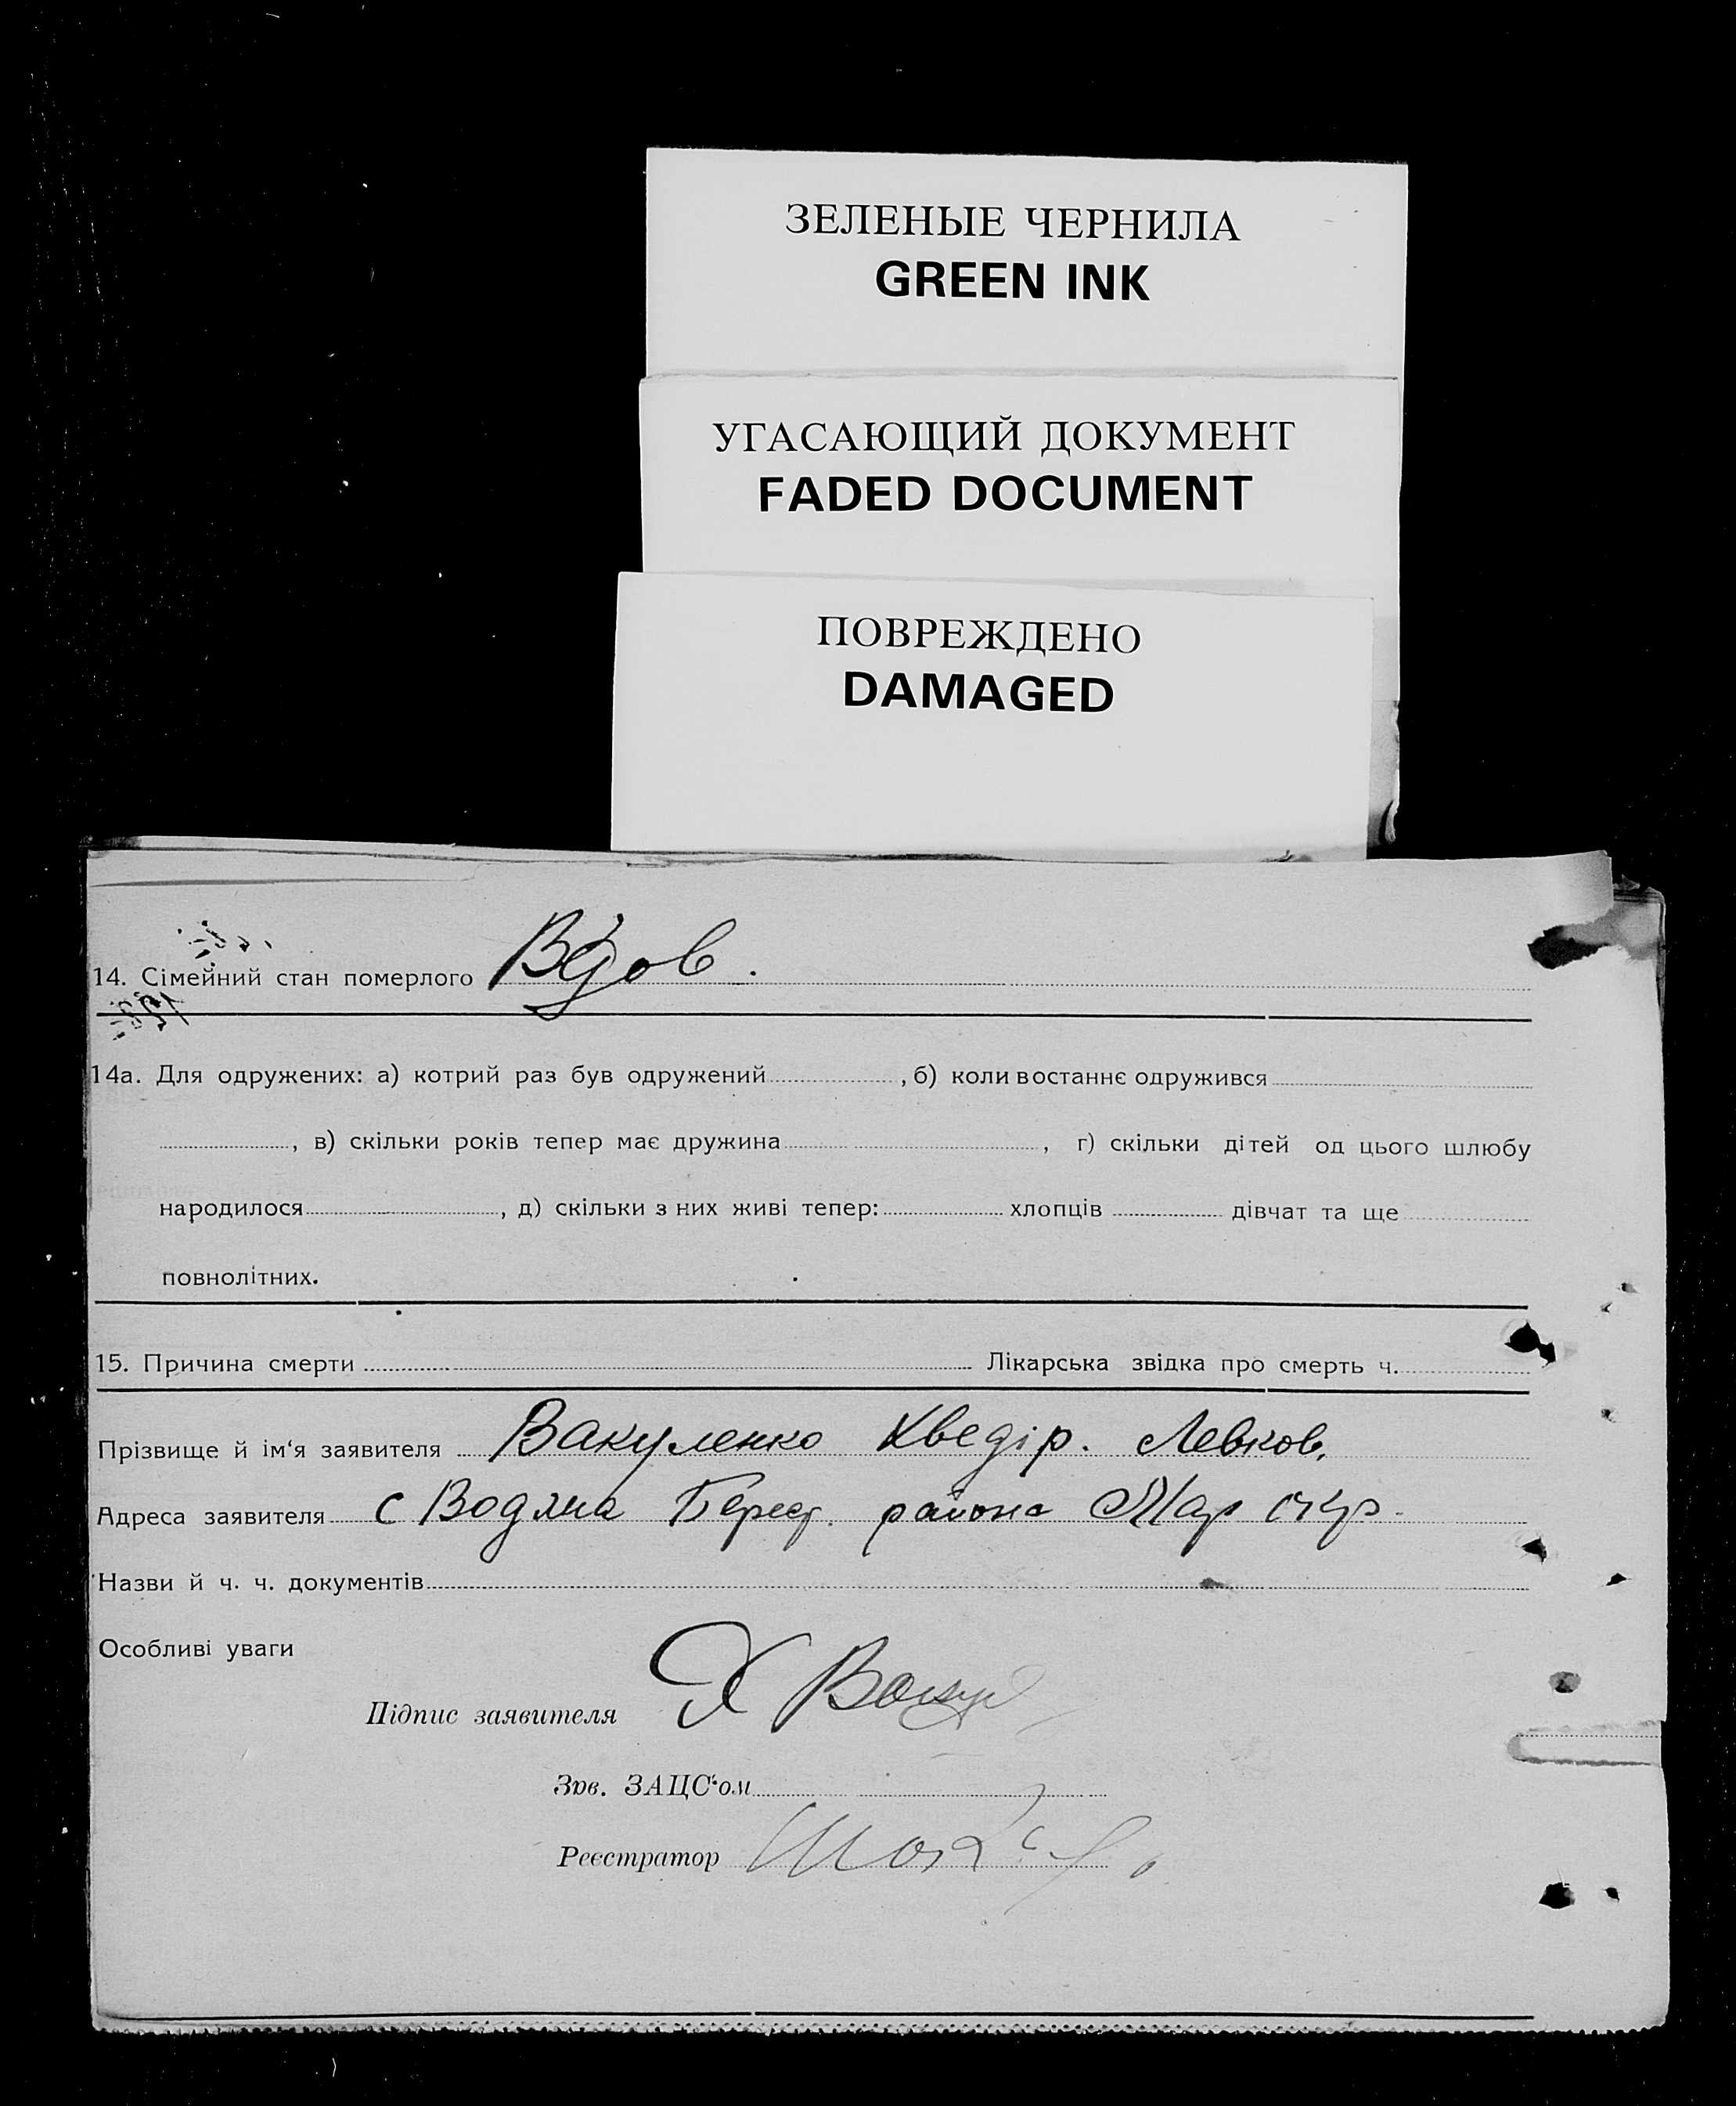 ЗЕЛЕНЫЕ ЧЕРНИЛА
GREEN INK
УГАСАЮЩИЙ ДОКУМЕНТ
FADED DOCUMENT
ПОВРЕЖДЕНО
DAMAGED
14. Сімейний стан померлого Вдов.
14а. Для одружених: а) котрий раз був одружений , б) коли востаннє одружився
, в) скільки років тепер має дружина , г) скільки дітей од цього шлюбу
народилося , д) скільки з них живі тепер: хлопців дівчат та ще
повнолітних.
15. Причина смерти Лікарська звідка про смерть ч.
Прізвище й ім‘я заявителя Вакуленко Хведір. Левков.
Адреса заявителя с Водяна Берест. района Мар окр.
Назви й ч. ч. документів
Особливі уваги
Підпис заявителя Х Вакул
Зав. ЗАЦС‘ом
Реєстратор